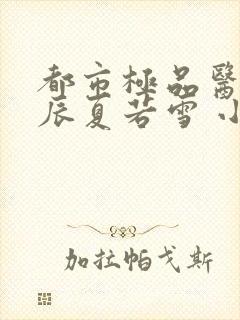 都市極品醫
辰夏若雪 小
加拉帕戈斯